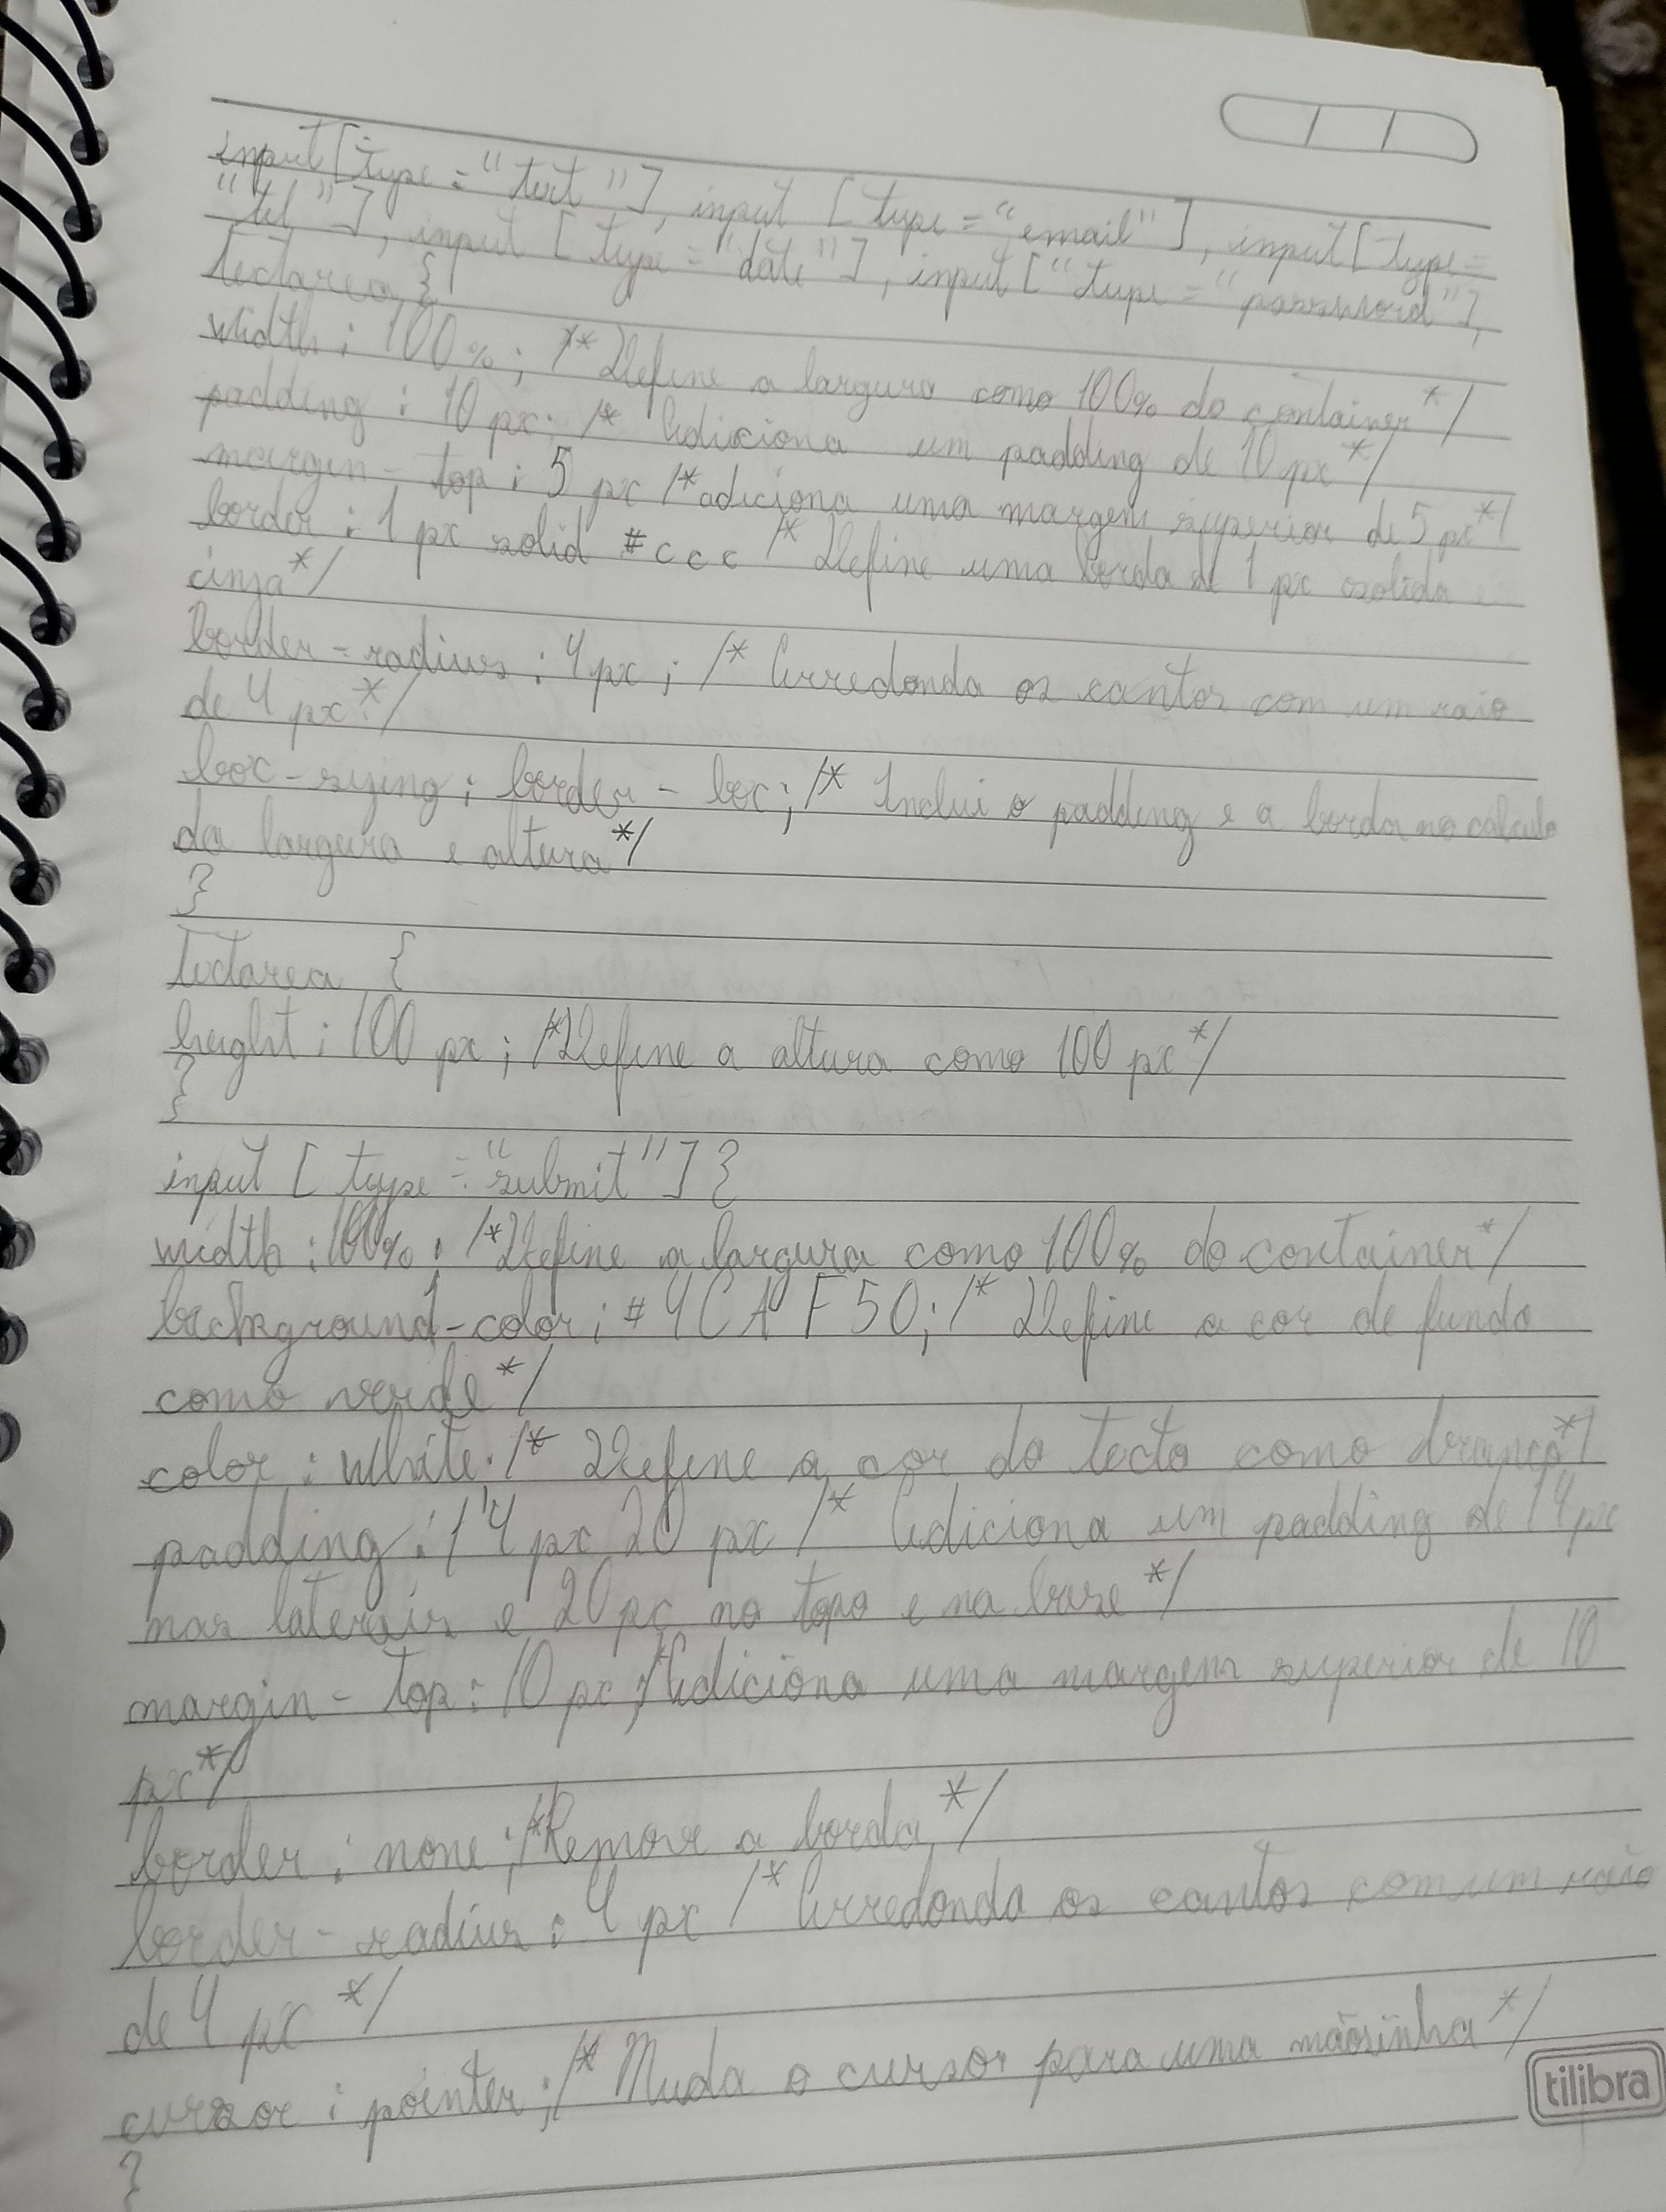 input [type = "text"], input [type = "email"], input [type =
"tel"], input [type = "date"], input ["type = "password"],
textarea {
width : 100%; /* Define a largura como 100% do container */
padding : 10 px; /* Adiciona um padding de 10 px */
margin - top : 5 px /* adiciona uma margem superior de 5 px */
border : 1 px solid #ccc /* Define uma borda de 1 px solida e
cinza */
border - radius : 4 px ; /* Arredonda os cantos com um raio
de 4 px */
box - sizing : border - box; /* Inclui o padding e a borda no cálculo
da largura e altura */
}
textarea {
height : 100 px ; /* Define a altura como 100 px */
}
input [ type = "submit" ] {
width : 100% ; /* Define a largura como 100% do container */
background - color : # 4CAF50; /* Define a cor de fundo
como verde */
color : white; /* Define a cor do texto como branco */
padding : 14 px 20 px /* Adiciona um padding de 14 px
nas laterais e 20 px no topo e na base */
margin - top : 10 px ; /* Adiciona uma margem superior de 10
px */
border : none ; /* Remove a borda */
border - radius : 4 px /* Arredonda os cantos com um raio
de 4 px */
cursor : pointer ; /* Muda o cursor para uma mãosinha */
}
tilibra